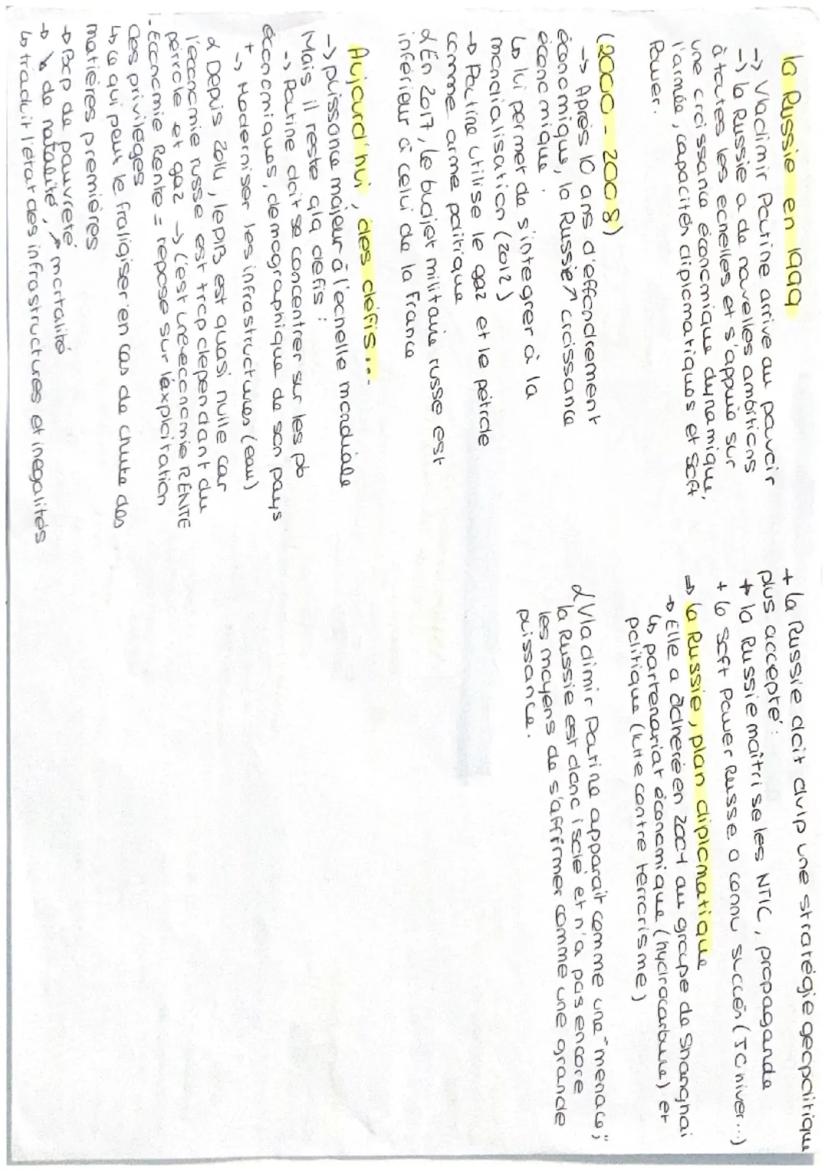 la Russie en 1999
-> Vladimir Poutine arrive au pouvoir
-> la Russie a de nouvelles ambitions
à toutes les echelles et s'appuie sur
une croissance économique dynamique,
l'armée, capacités diplomatiques et soft
Power.
(2000 - 2008)
-> Après 10 ans d'effondrement
économique, la Russie ↗ croissance
économique.
↳ lui permet de s'integrer à la
mondialisation (2012)
→ Poutine utilise le gaz et le pétrole
comme arme politique
En 2017, le budjet militaire russe est
inférieur à celui de la France
Aujourd'hui, des défis...
-> puissance majeur à l'echelle mondiale
Mais il reste qlq defis :
-> Poutine doit se concentrer sur les pb
économiques, demographique de son pays
+
-> Moderniser les infrastructures (eau)
Depuis 2014, le PIB est quasi nulle car
l'économie russe est trop dependant du
pétrole et gaz -> C'est une économie RENTE
- Economie Rente = repose sur l'exploitation
des privilèges
↳ ce qui peut le fragiliser en cas de chute des
matières premières
→ Bcp de pauvreté
→ ↘ de natalité, ↗ mortalité
↳ traduit l'état des infrastructures et inégalités
+ la Russie doit avip une stratégie géopolitique
plus accepté :
+ la Russie maîtrise les NTIC, propagande
+ le soft Power Russe a connu succès (JO hiver...)
⇒ la Russie, plan diplomatique
→ Elle a adhéré en 2001 au groupe de Shanghai
↳ partenariat économique (hydrocarbure) et
politique (lutte contre terrorisme)
Vladimir Poutine apparait comme une "menace",
la Russie est donc isolé et n'a pas encore
les moyens de s'affirmer comme une grande
puissance.